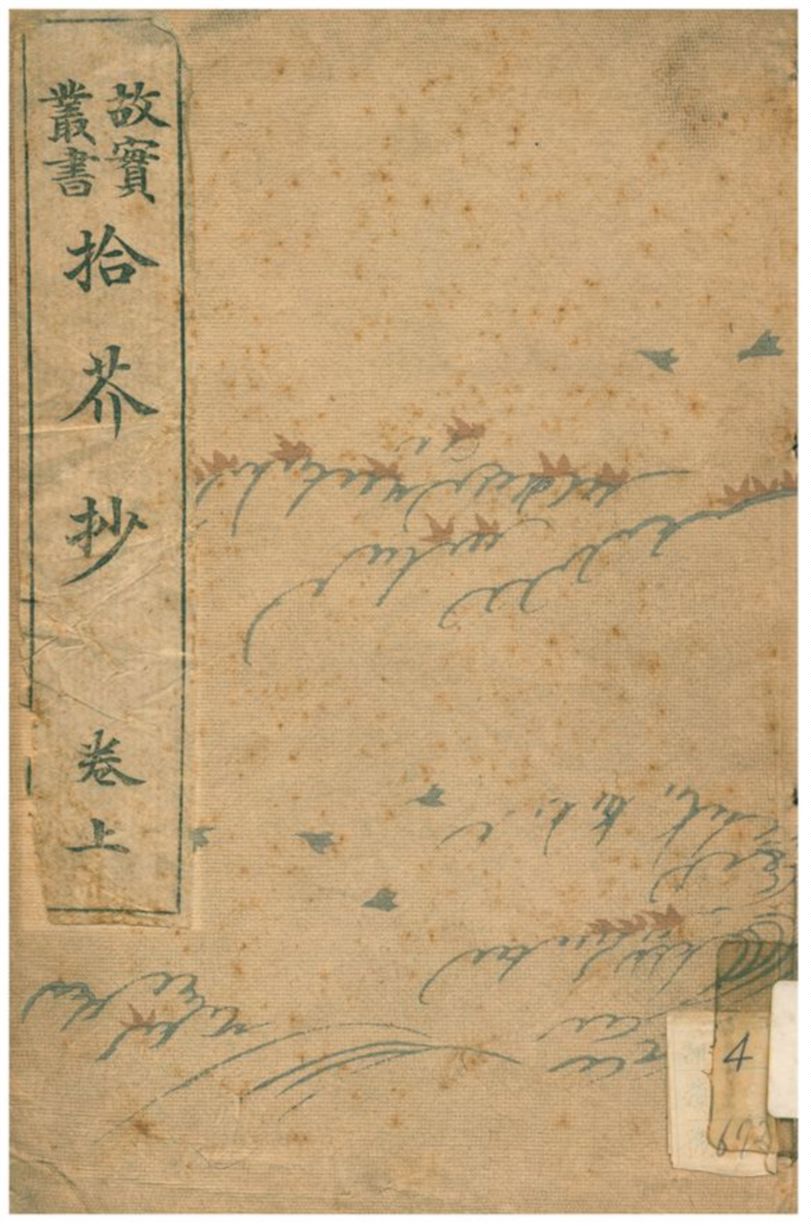 故實
叢書
拾芥抄 卷上
4
692